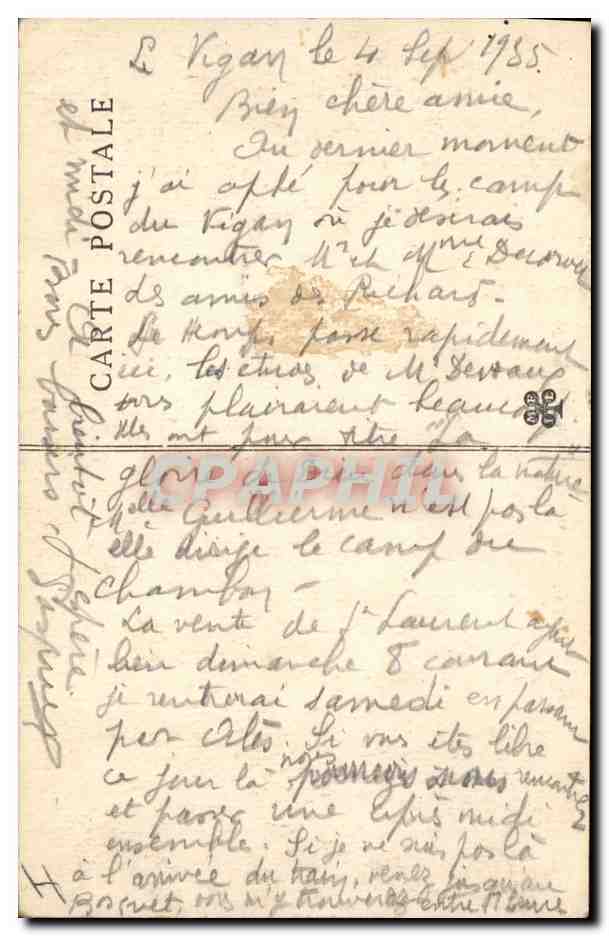 Le Vigan le 4 Sep 1935.
Bien chère amie,
Au dernier moment
j'ai opté pour le camp
du Vigan où je désirais
rencontrer Mr et Mme
des amis de Richard -
Le temps passe rapidement
ici, les études de Mr
vous plairaient beaucoup.
Elles ont pour titre "La
gloire de Dieu dans la nature"
Melle Guillerme n'est pas là
elle dirige le camp du
Chambon -
La vente de St Laurent ayant
lieu dimanche 8 courant
je rentrerai samedi en passant
par Alès. Si vous êtes libre
ce jour là nous rencontrer
et passer une après midi
ensemble. Si je ne suis pas là
à l'arrivée du train, venez jusqu'au
Bosquet, vous m'y trouverez entre 11 heures
et midi. Bons baisers
et à bientôt j'espère.
CARTE POSTALE
CPAPHIL